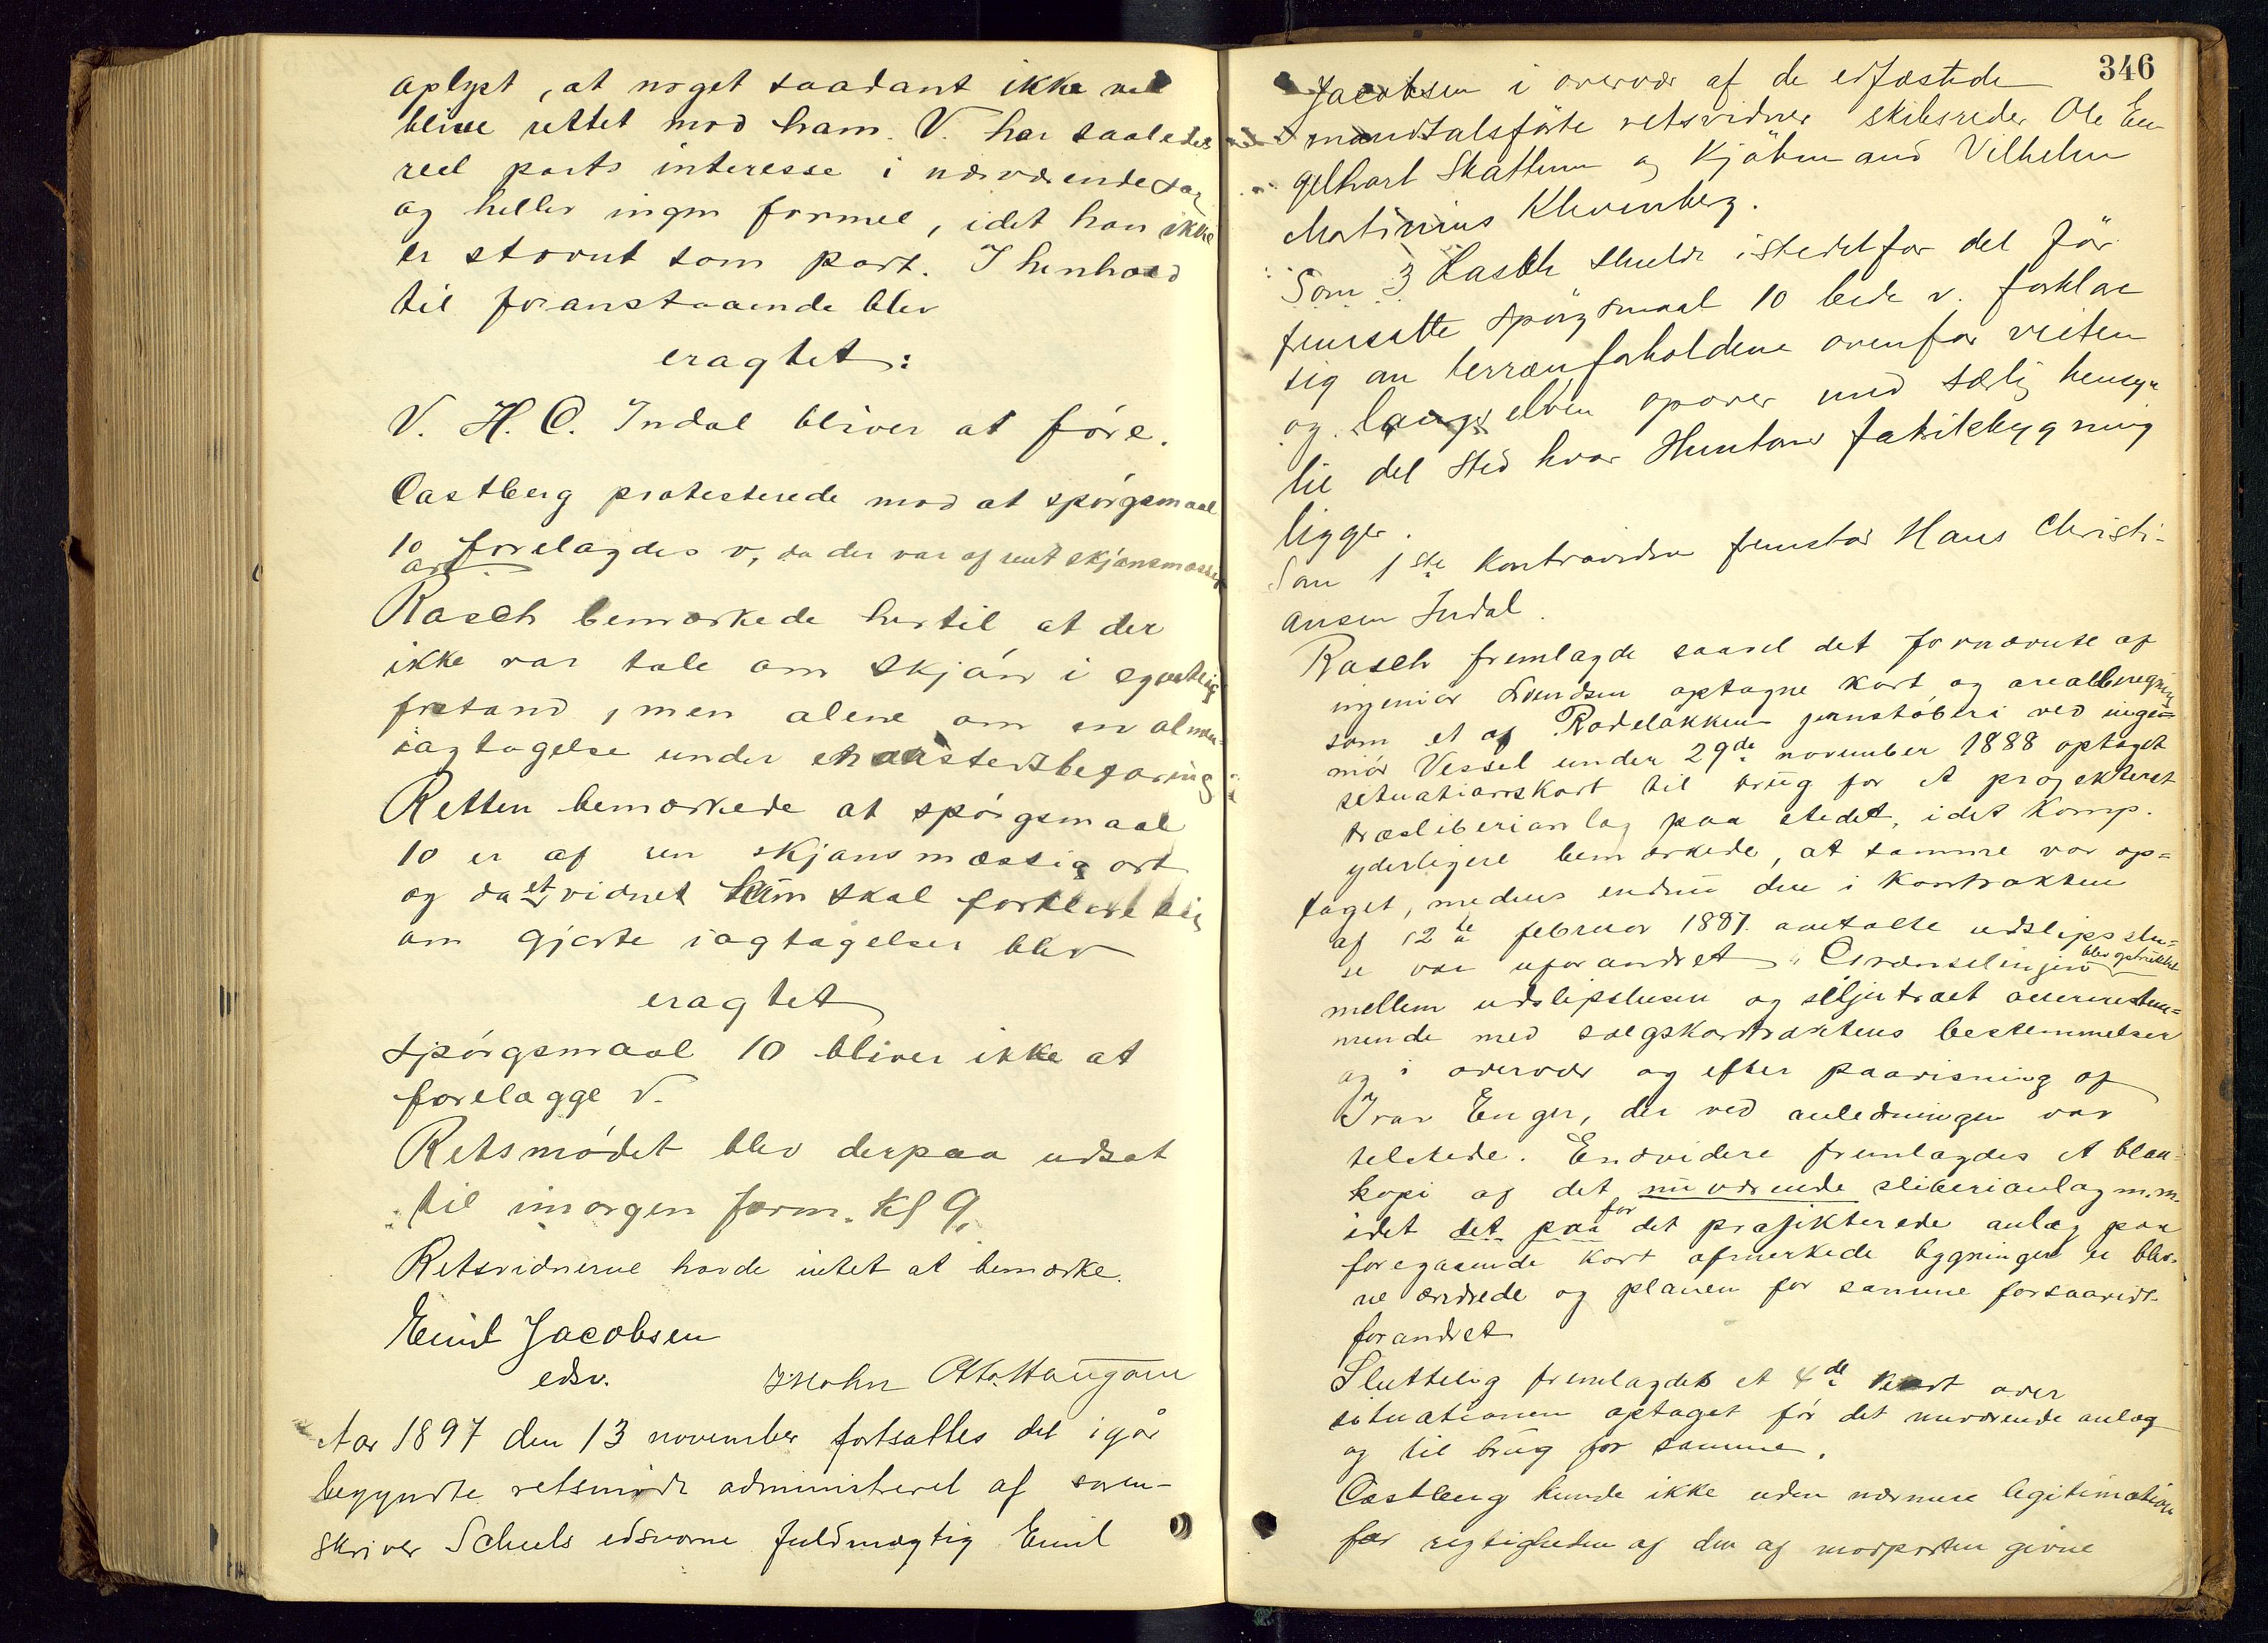 oplyst, at noget saadant ikke vil
blive rettet mod ham. V. har saaledes
reel parts interesse i nærværende sag
og heller ingen formel, idet han ikke
er stævnt som part. I henhold
til foranstaaende blev
eragtet:
V. H. C. Indal bliver at före.
Castberg protesterede mod at spörgsmaal
10 forelagdes v, da der var af rent skjönsmæssig
art
Rasch bemærkede hertil at der
ikke var tale om skjön i egentlig
forstand, men alene om en almen-
iagtagelse under
Retten bemærkede at spörgsmaal
10 er af ren skjönsmæssig art
og da et vidnet kun skal forklare sig
om gjorte iagtagelser blev
eragtet
Spörgsmaal 10 bliver ikke at
forelægge V.
Retsmödet blev derpaa udsat
til imorgen form. Kl 9.
Retsvidnerne havde intet at bemærke.
Emil Jacobsen
edsv. Otto Haugom
Aar 1897 den 13 november fortsattes det igår
begyndte retsmöde administreret af soren-
skriver Scheels edsvorne fuldmægtig Emil
346
Jacobsen i overvær af de edfæstede
mandtalsförte retsvidner skibsreder Ole En
gelhart Skattum og Kjöbmand Vilhelm
Martinius Klevenberg.
Som 3 Rasch skulde istedetfor det för
fremsatte spörgsmaal 10 bede v. forklare
sig om terrænforholdene ovenfor vriten
og langs elven opover med særlig hensyn
til det sted hvor Huntons fabrikbygning
ligger.
Som 1ste Kontravidne fremstod Hans Christi-
ansen Indal.
Rasch fremlagde saavel det fornævnte af
ingeniör Svendsen optagne kart og arealberegning
som et af Rodelökkens jernstöberi ved inge-
niör Vessel under 29de november 1888 optaget
situationskart til brug for et projekteret
træsliberianlæg paa stedet, idet Komp.
yderligere bemærkede, at samme var op-
taget, medens endnu den i Kontrakten
af 12te februar 1887 omtalte udslipsslu-
se var uforandret. Grænselinjen blev optrukket
mellem udslipslusen og seljetræet overensstem-
mende med salgskontraktens bestemmelser
og i overvær og efter paavisning af
Ivar Enger, der ved anledningen var
tilstede. Endvidere fremlagdes et blaa-
kopi af det nuværende sliberianlæg m.m.
idet det paa for det prosjekterede anlæg paa
foregaaende kart afmerkede bygninger er blev-
ne ændrede og planen for samme forsaavidt
forandret
Sluttelig fremlagdes et 4de kart over
situationen optaget för det nuværende anlæg
og til brug for samme.
Castberg kunde ikke uden nærmere legitimation
for rigtigheden af den af modparten givne